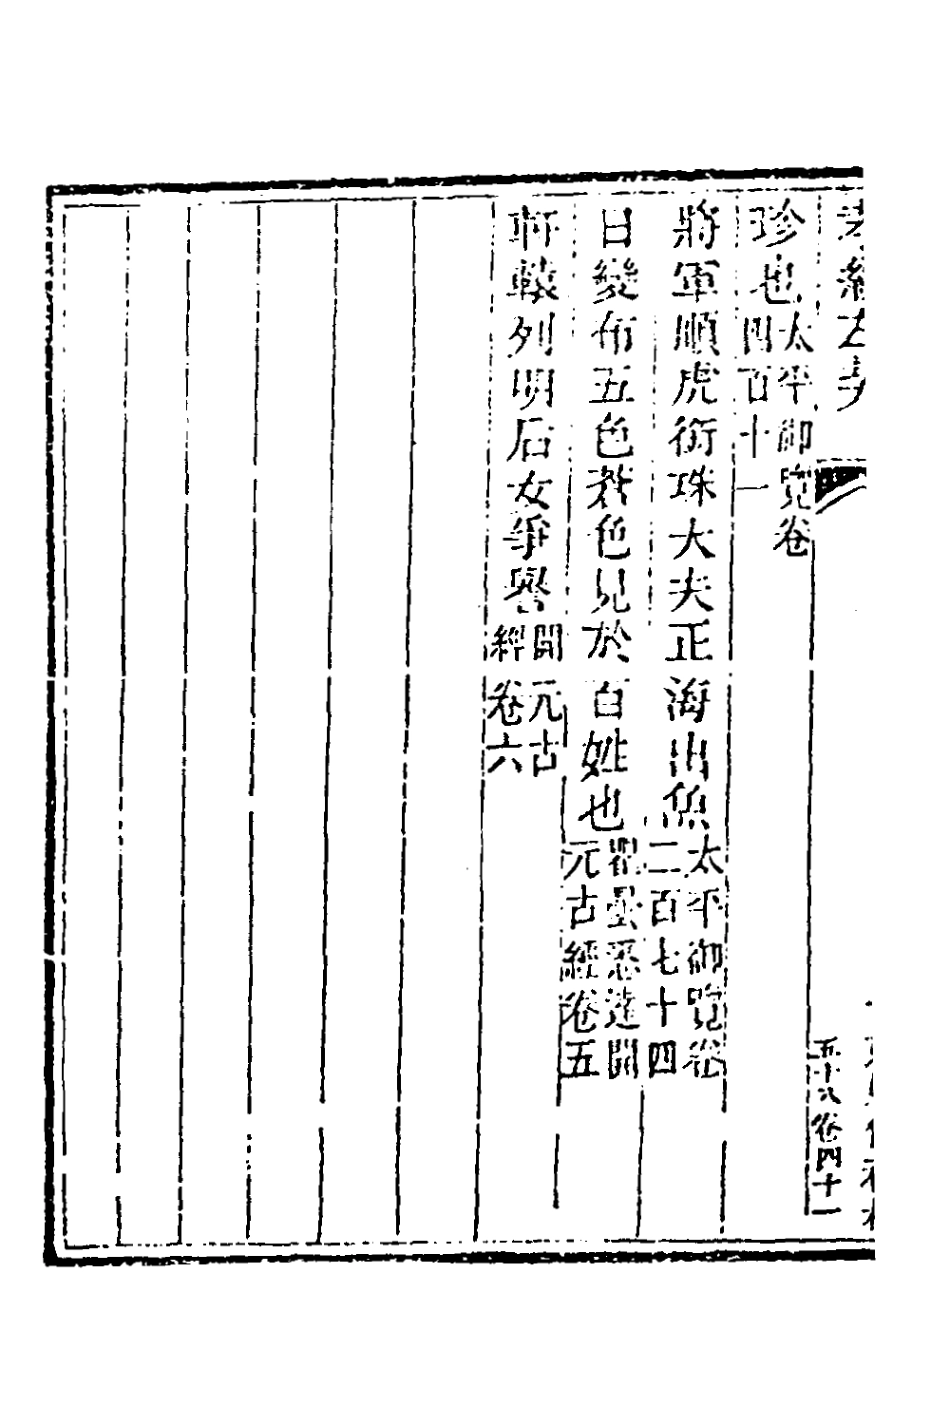 珍也太平御覽卷四百十一
將軍順虎銜珠大夫正海出魚太平御覽卷二百七十四
日變布五色蒼色見於百姓也瞿曇悉達開元古經卷五
軒轅列明后女爭譽開元古經卷六
五十八卷四十一